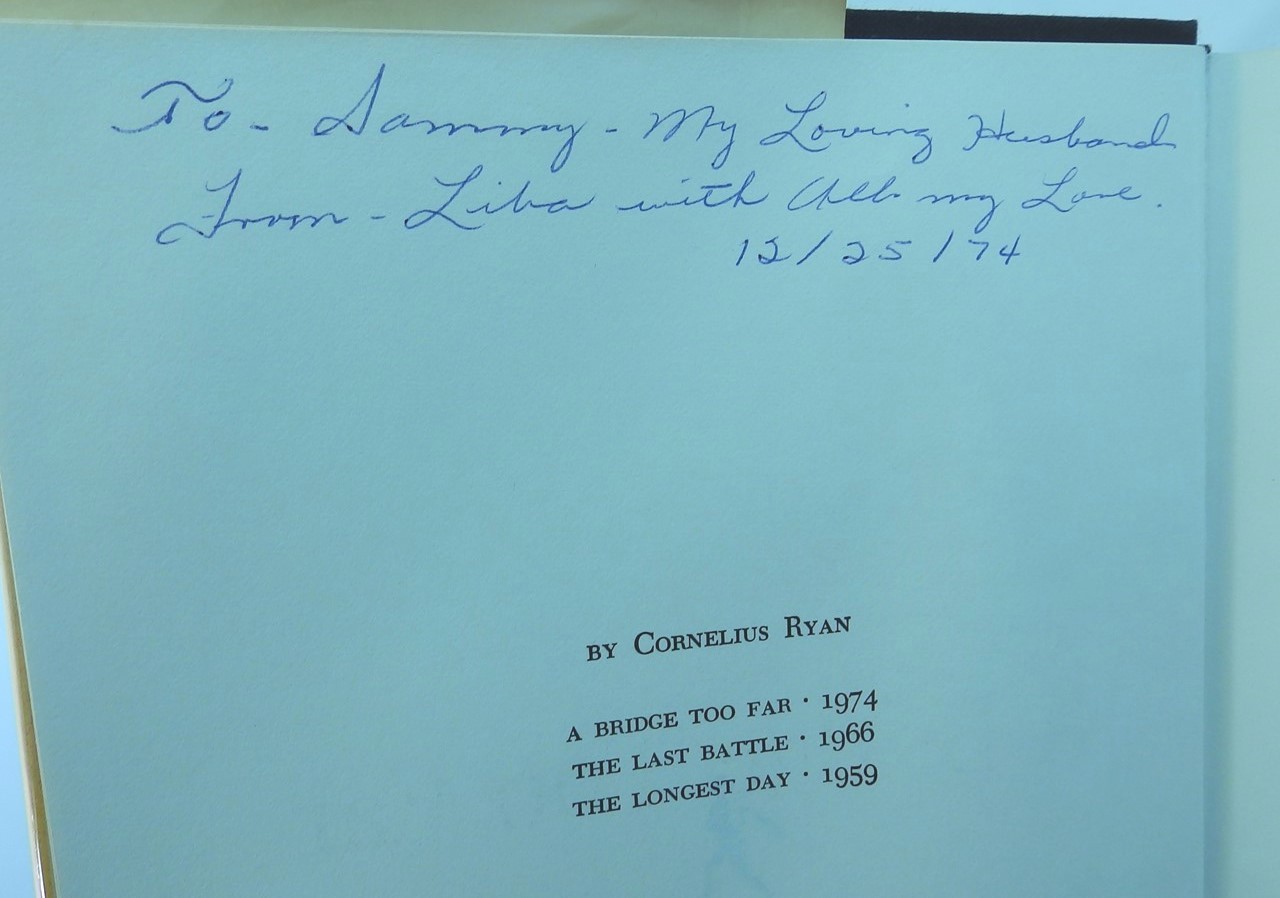 To - Sammy - My Loving Husband
From - Liba with All my Love.
12/25/74
BY CORNELIUS RYAN
A BRIDGE TOO FAR · 1974
THE LAST BATTLE · 1966
THE LONGEST DAY · 1959